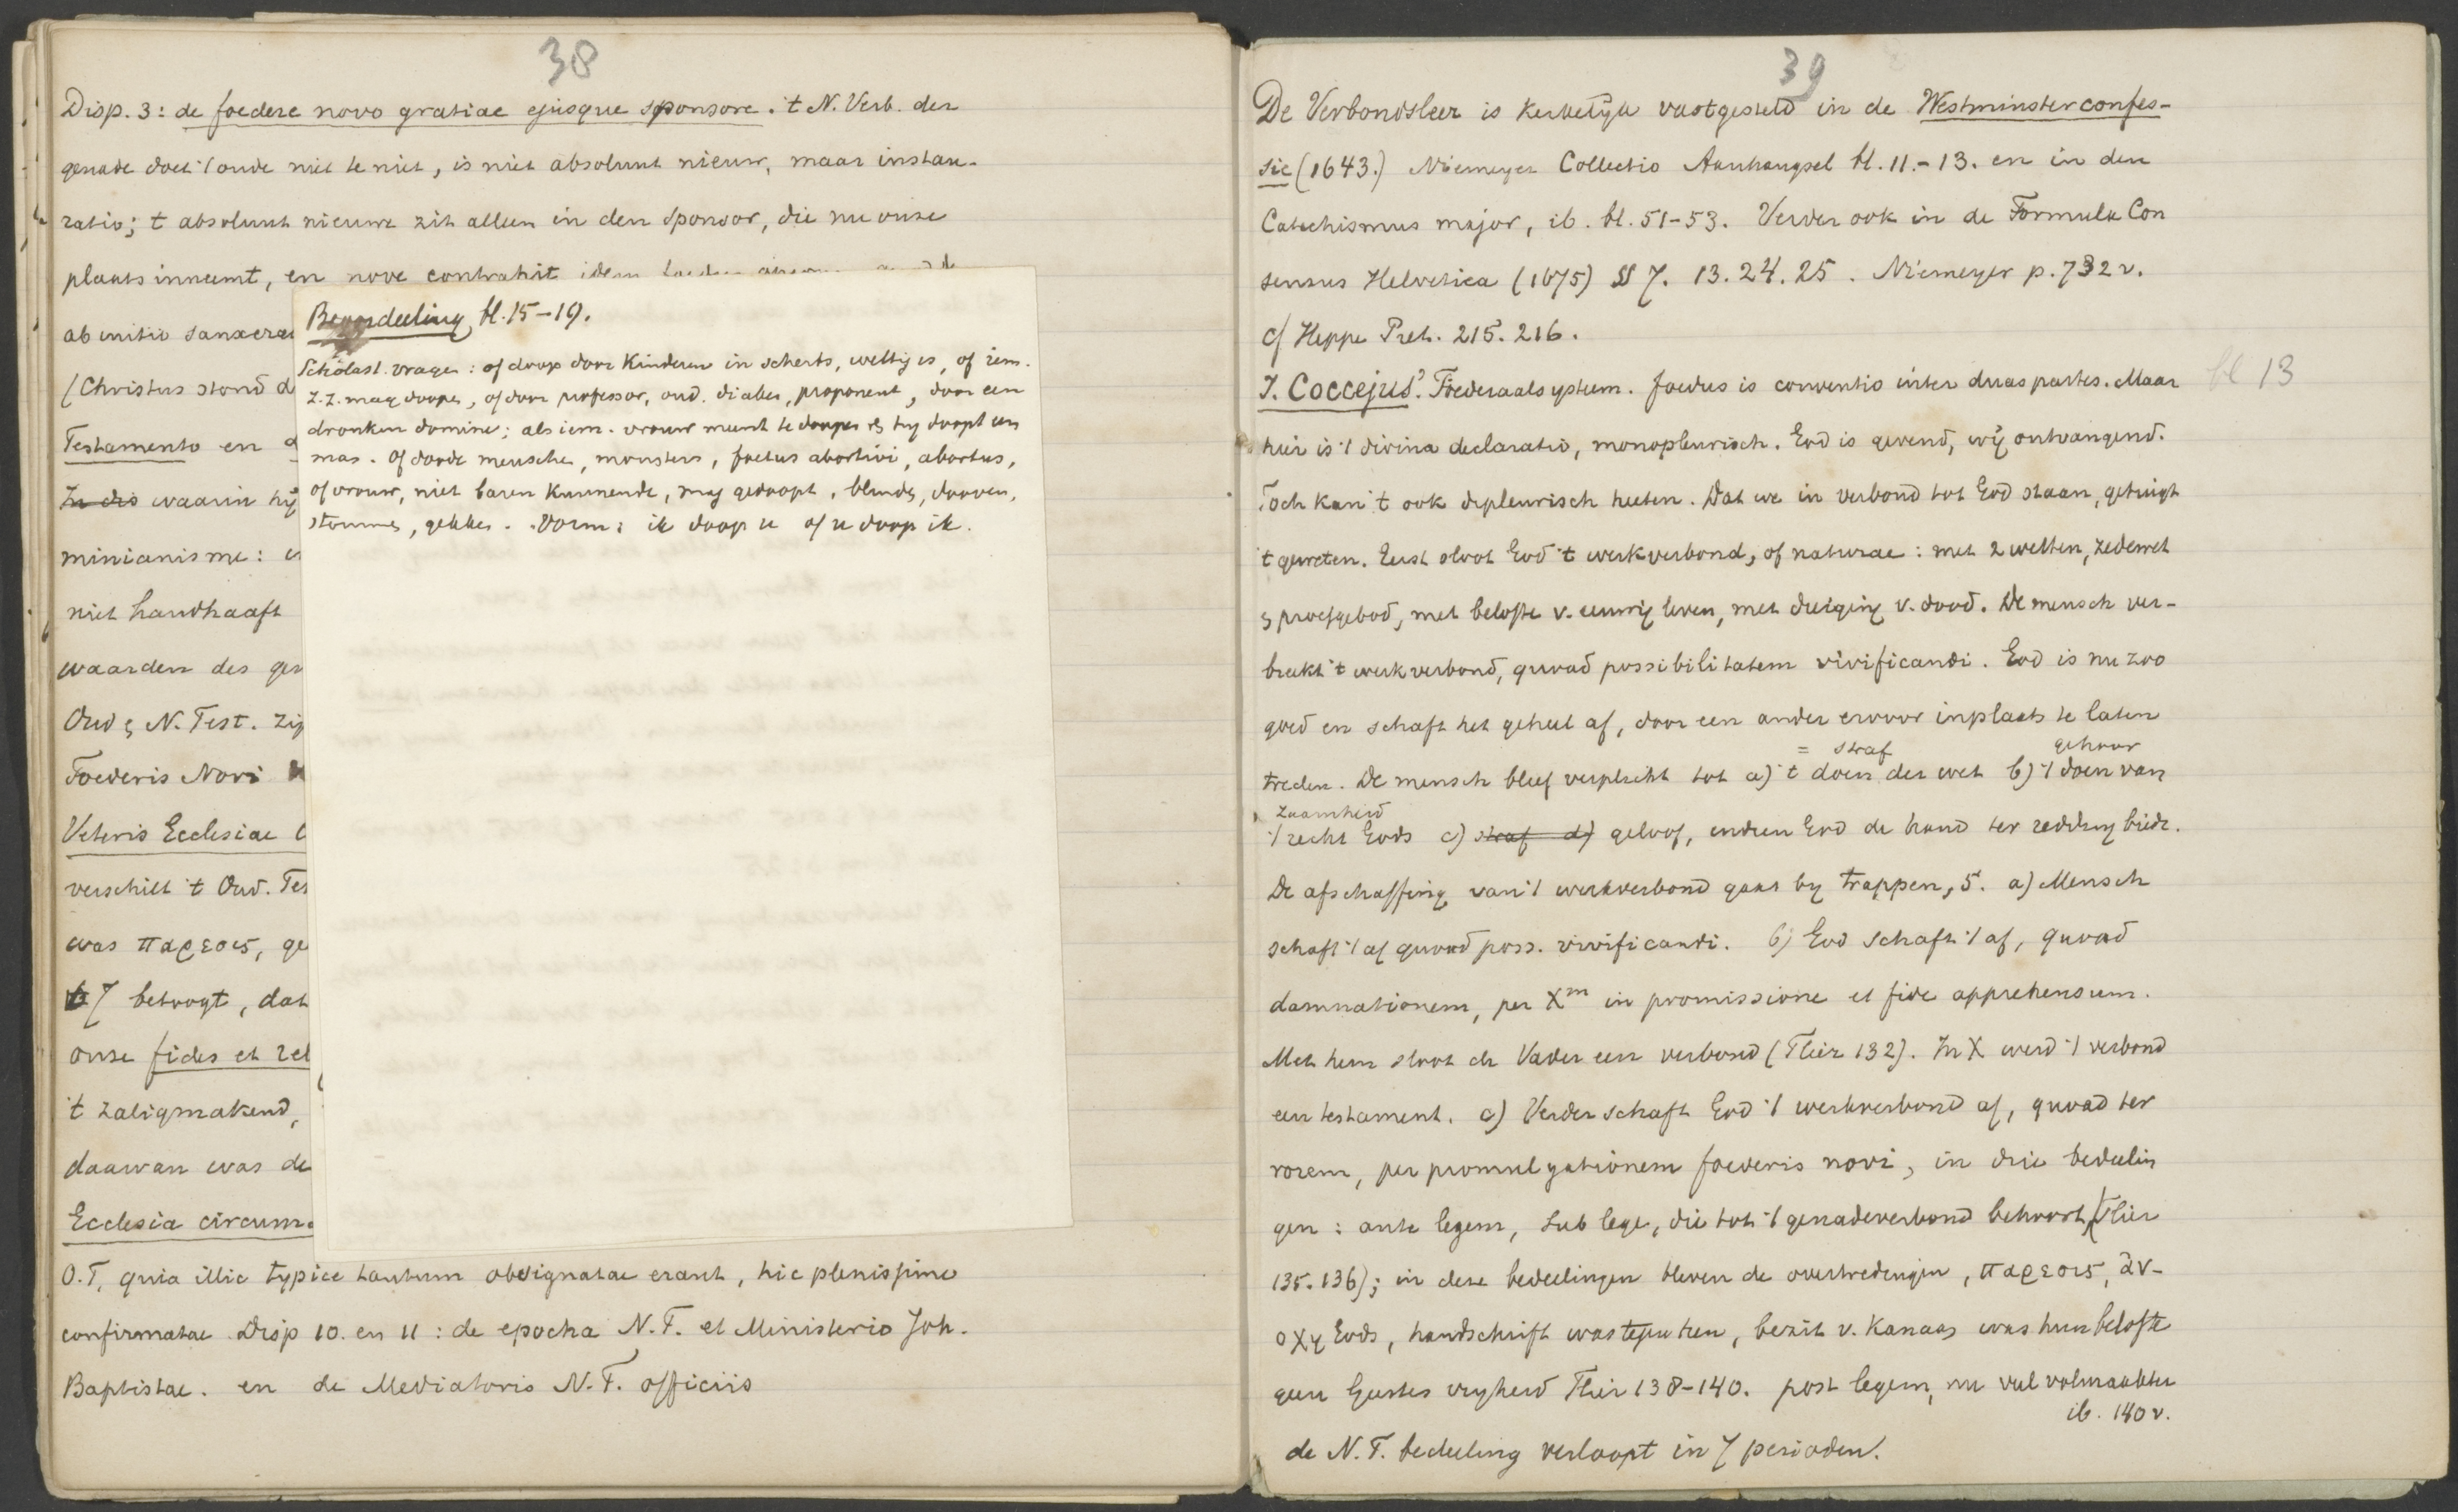 38
Disp. 3: de foedere novo gratiae ejusque sponsore. 't N. Verb. der
genade doet 't oude niet te niet, is niet absoluut nieuw, maar instau-
ratio; 't absoluut nieuwe zit alleen in den sponsor, die nu onze
plaats inneemt, en nove contrahit idem
ab initio
(Christus stond
Testamento en
In dis waarin hij
minianisme:
niet handhaaft
waarden des
Oud & N. Test.
Foederis Novi
Veteris Ecclesiae
verschilt 't Oud.
was παρεσις,
7 betoogt, dat
onze fides et
't zaligmakend,
daarvan was de
Ecclesia
O.T. quia illic typice tantum obsignatae erant, hic plenissime
confirmatae Disp 10. en 11: de epocha N.T. et Ministerio Joh.
Baptistae. en de Mediatoris N.T. officiis
Beoordeeling bl. 15-19.
Scholast. vragen: of doop door kinderen in scherts, wettig is, of iem.
z.z. mag doopen, of door professor, oud. diaken, proponent, door een
dronken domine; als iem. vrouw meent te doopen & hij doopt een
mas. of doode menschen, monsters, foetus abortivi, abortus,
of vrouw, niet baren kunnende, mag gedoopt, blinde, dooven,
stommen, gekken. Vorm: ik doop u of u doop ik.
39
De Verbondsleer is kerkelijk vastgesteld in de Westminsterconfes-
sie (1643.) Niemeyer Collectio Aanhangsel bl. 11.-13. en in den
Catechismus major, ib. bl. 51-53. Verder ook in de Formula Con
sensus Helvetica (1675) §§ 7. 13. 24. 25. Niemeyer p. 732 v.
cf Heppe Pret. 215. 216.
J. Coccejus' Foederaalsysteem. foedus is conventio inter duas partes. Maar
bl 13
hier is 't divina declaratio, monopleurisch. God is gevend, wij ontvangend.
Toch kan 't ook dipleurisch heeten. Dat we in verbond tot God staan, getuigt
't geweten. Eerst sloot God 't werkverbond, of naturae: met 2 wetten, zedewet
& proefgebod, met belofte v. eeuwig leven, met dreiging v. dood. De mensch ver-
breekt 't werkverbond, quoad possibilitatem vivificandi. God is nu zoo
goed en schaft het geheel af, door een ander ervoor inplaats te laten
= straf gehoor
treden. De mensch bleef verplicht tot a) 't doen der wet b) 't doen van
zaamheid
't recht Gods c) straf d) geloof, indien God de hand ter redding biedt.
De afschaffing van 't werkverbond gaat bij trappen, 5. a) Mensch
schaft 't af quoad poss. vivificandi. b) God schaft 't af, quoad
damnationem, per Xm in promissione et fide apprehensum.
Met hem sloot de Vader een verbond (Flier 132). In X werd 't verbond
een testament. c) Verder schaft God 't werkverbond af, quoad ter
rorem, per promulgationem foederis novi, in drie bedeelin
gen: ante legem, sub lege, die tot 't genadeverbond behoort, (Flier
135. 136); in deze bedeelingen bleven de overtredingen, παρεσις, ἀν-
οχη Gods, handschrift was tegen hen, bezit v. Kanaan was hun belofte
geen Geestes vrijheid Flier 138-140. post legem, nu veel volmaakter
ib. 140 v.
de N.T. bedeeling verloopt in 7 perioden.